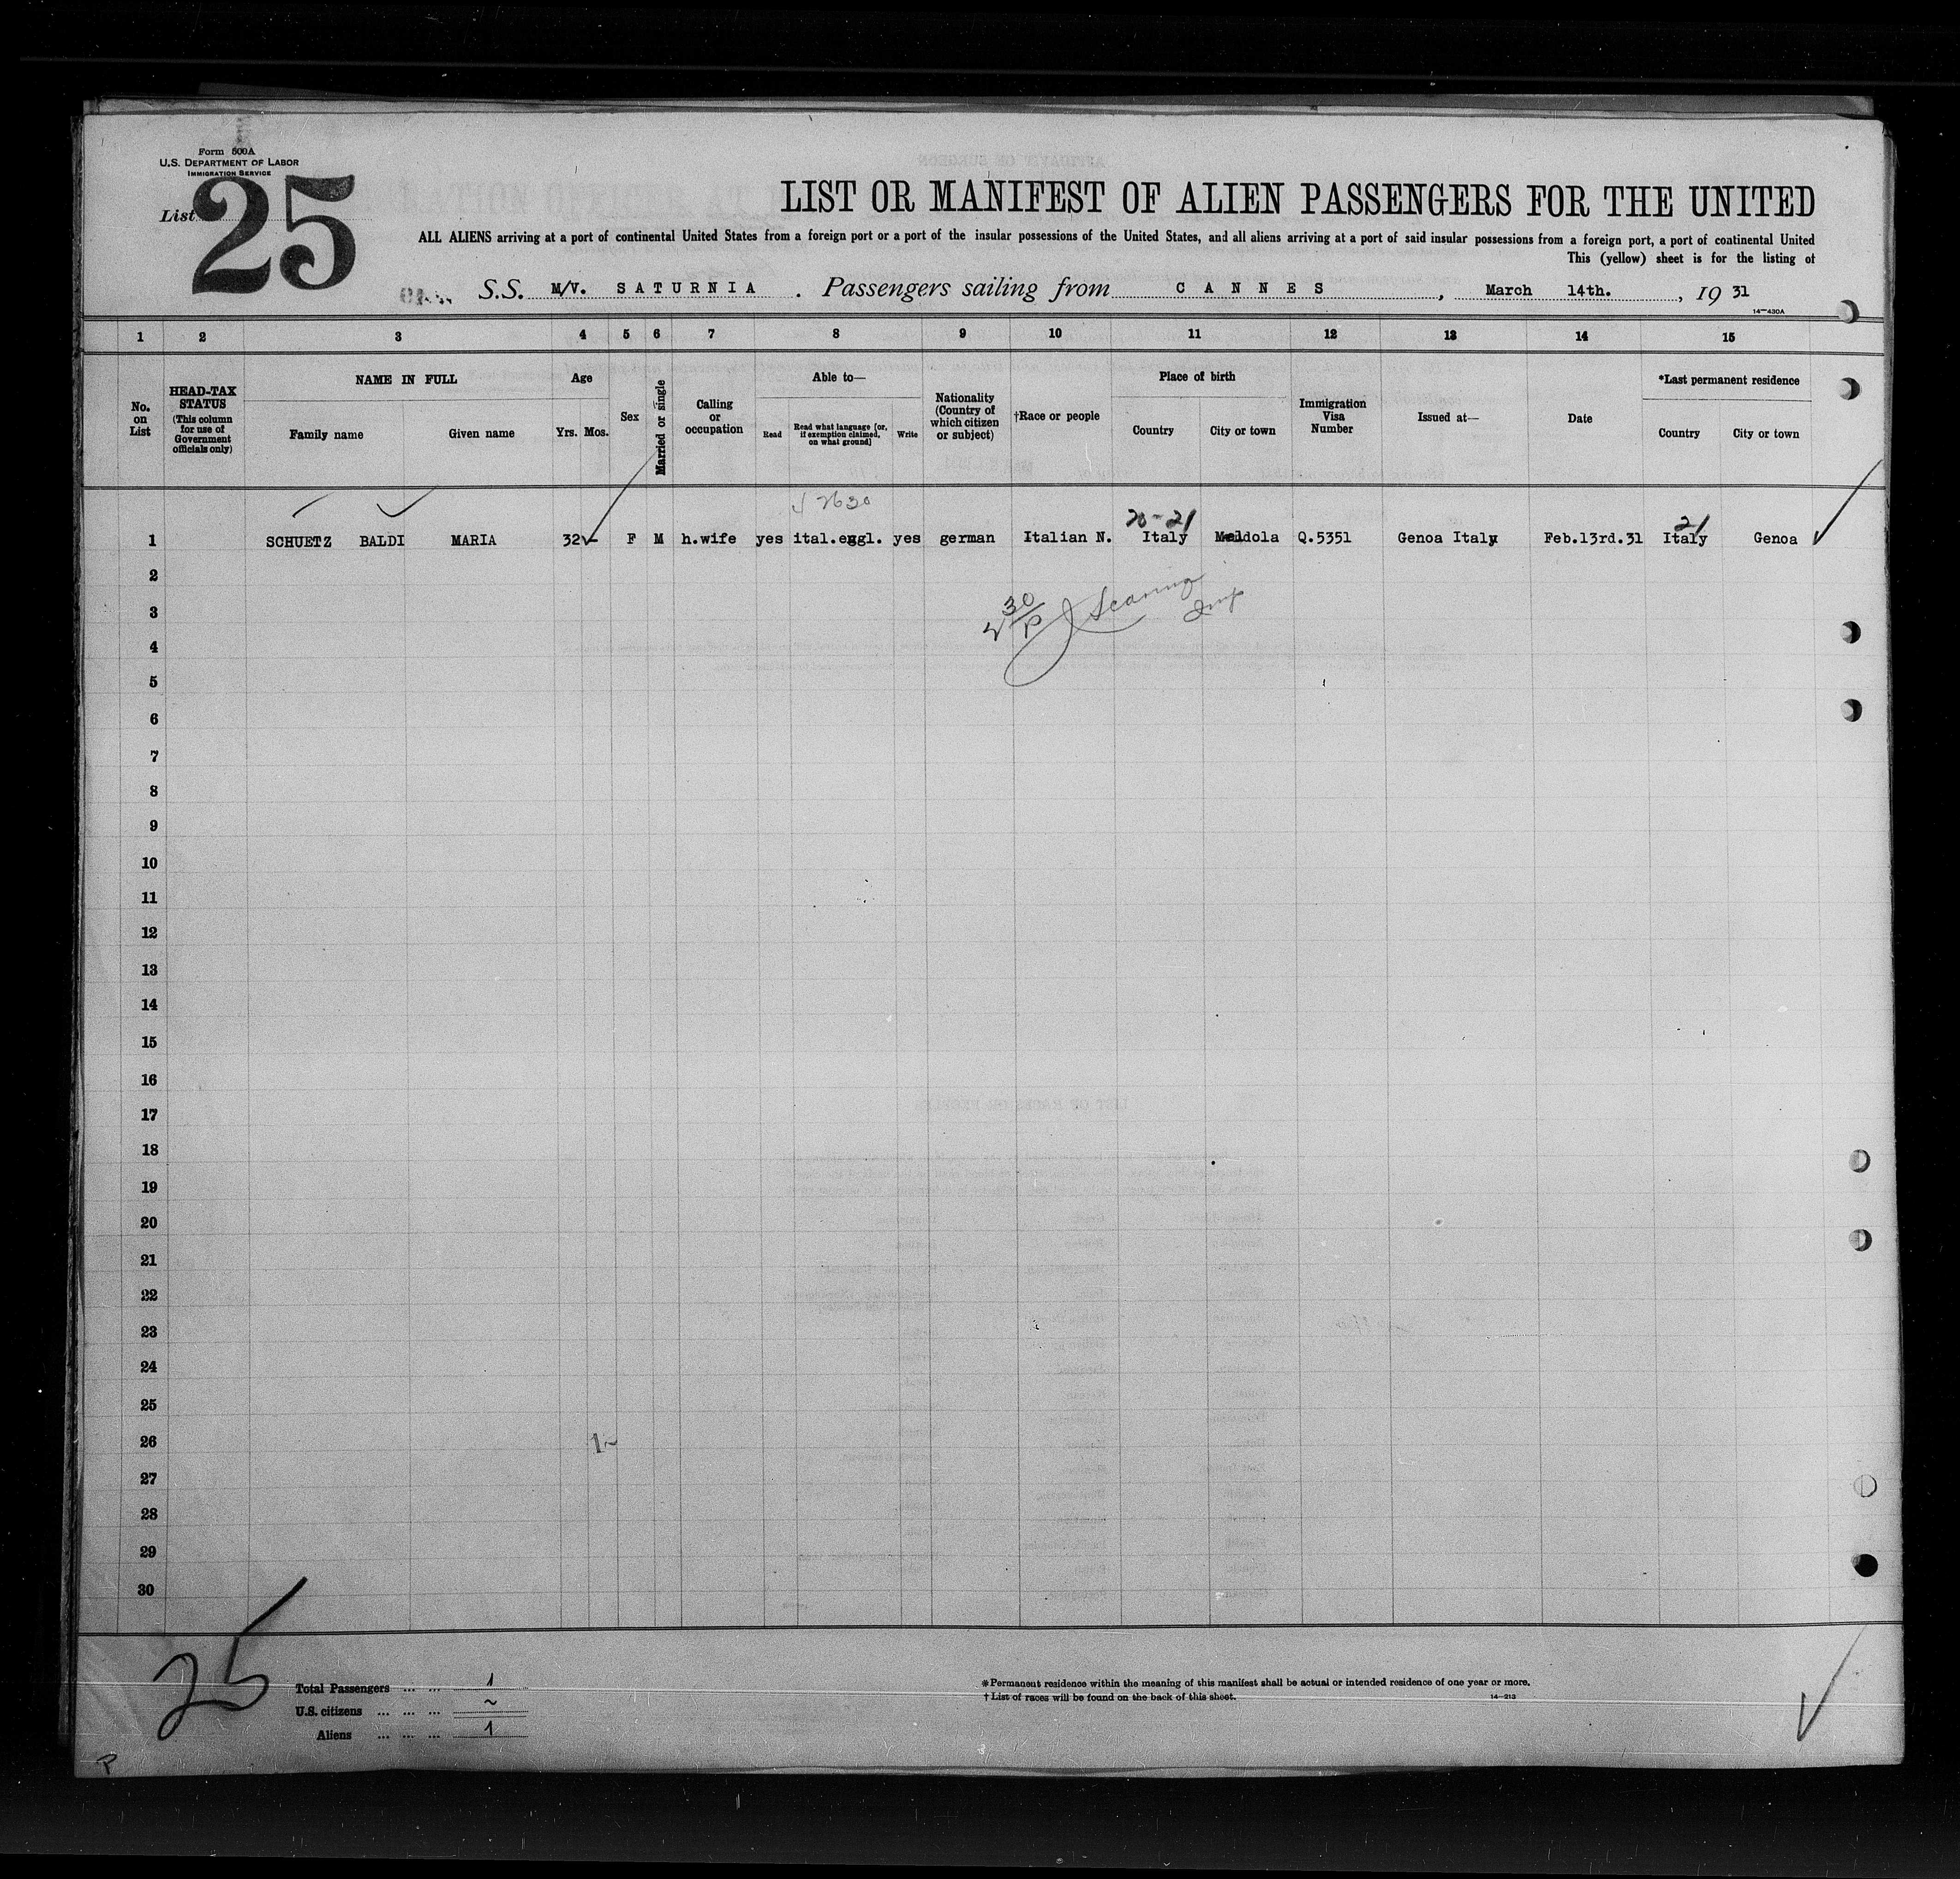 Form 500A
U.S. DEPARTMENT OF LABOR
IMMIGRATION SERVICE
List 25
LIST OR MANIFEST OF ALIEN PASSENGERS FOR THE UNITED
ALL ALIENS arriving at a port of continental United States from a foreign port or a port of the insular possessions of the United States, and all aliens arriving at a port of said insular possessions from a foreign port, a port of continental United
This (yellow) sheet is for the listing of
S.S. M/V. SATURNIA. Passengers sailing from CANNES, March 14th., 19 31
14—430A
1 2 3 4 5 6 7 8 9 10 11 12 13 14 15
No. on List
HEAD-TAX STATUS (This column for use of Government officials only)
NAME IN FULL
Family name Given name
Age
Yrs. Mos.
Sex
Married or single
Calling or occupation
Able to—
Read Read what language [or, if exemption claimed, on what ground] Write
Nationality (Country of which citizen or subject)
†Race or people
Place of birth
Country City or town
Immigration Visa Number
Issued at—
Date
*Last permanent residence
Country City or town
2630
20-21 21
1 SCHUETZ BALDI MARIA 32 F M h.wife yes ital.engl. yes german Italian N. Italy Meldola Q.5351 Genoa Italy Feb.13rd.31 Italy Genoa
2
3
30
4
5
6
7
8
9
10
11
12
13
14
15
16
17
18
19
20
21
22
23
24
25
26
1
27
28
29
30
25
Total Passengers ... ... 1
U.S. citizens ... ... ... ~
Aliens ... ... ... 1
*Permanent residence within the meaning of this manifest shall be actual or intended residence of one year or more.
†List of races will be found on the back of this sheet.
14—213
P